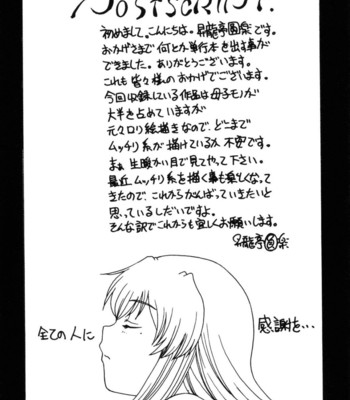 Postscript.
初めまして。こんにちは。昇龍亭圓楽です。
おかげさまで何とか単行本を出す事が
できました。ありがとうございます。
これも皆々様のおかげでございます。
今回収録している作品は母子モノが
大半を占めていますが
元々ロリ絵描きなので、どこまで
ムッチリ系が描けているか不安です。
まぁ生暖かい目で見てやって下さい。
最近ムッチリ系を描く事も楽しくなって
きたので、これからがんばっていきたいと
思っているしだいですよ。
そんな訳でこれからも宜しくお願いします。
昇龍亭圓楽
全ての人に
感謝を…